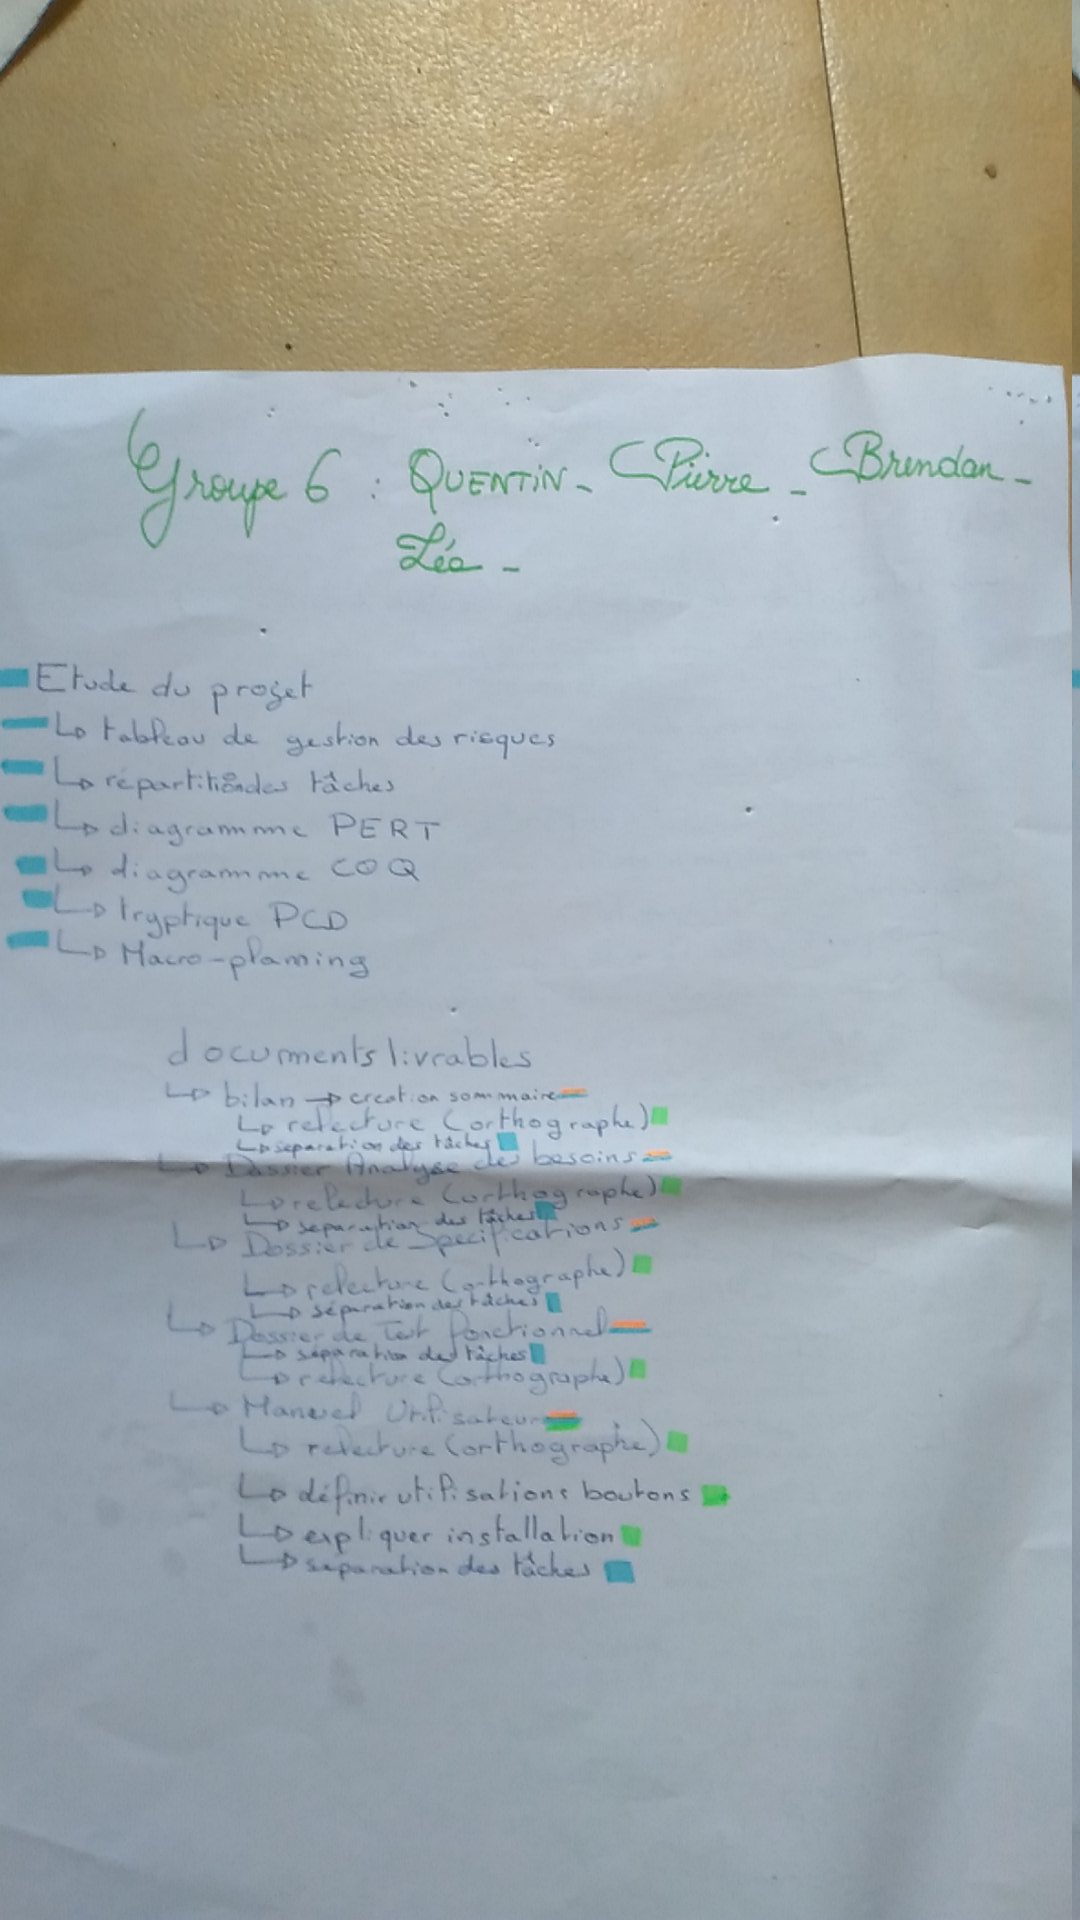 Groupe 6 : QUENTIN - Pierre - Brendan -
Léa -
Etude du projet
↳ tableau de gestion des risques
↳ répartition des tâches
↳ diagramme PERT
↳ diagramme COQ
↳ tryptique PCD
↳ Macro-planing
documents livrables
↳ bilan → creation sommaire
↳ relecture (orthographe)
↳ separation des tâches
↳ Dossier Analyse des besoins
↳ relecture (orthographe)
↳ separation des tâches
↳ Dossier de Specifications
↳ relecture (orthographe)
↳ séparation des tâches
↳ Dossier de Test fonctionnel
↳ séparation des tâches
↳ relecture (orthographe)
↳ Manuel Utilisateur
↳ relecture (orthographe)
↳ définir utilisations boutons
↳ expliquer installation
↳ separation des tâches